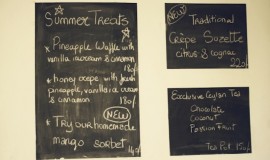 Summer Treats
* Pineapple Waffle with
vanilla icecream & cinnamon
18o/-
* honey crepe with fresh
pineapple, vanilla ice cream
& cinnamon
18o/-
NEW
* Try our homemade
mango sorbet
NEW
Traditional
Crêpe Suzette
citrus & cognac
220/-
Exclusive Ceylon Tea
Chocolate
Coconut
Passion Fruit
Tea Pot 150/-